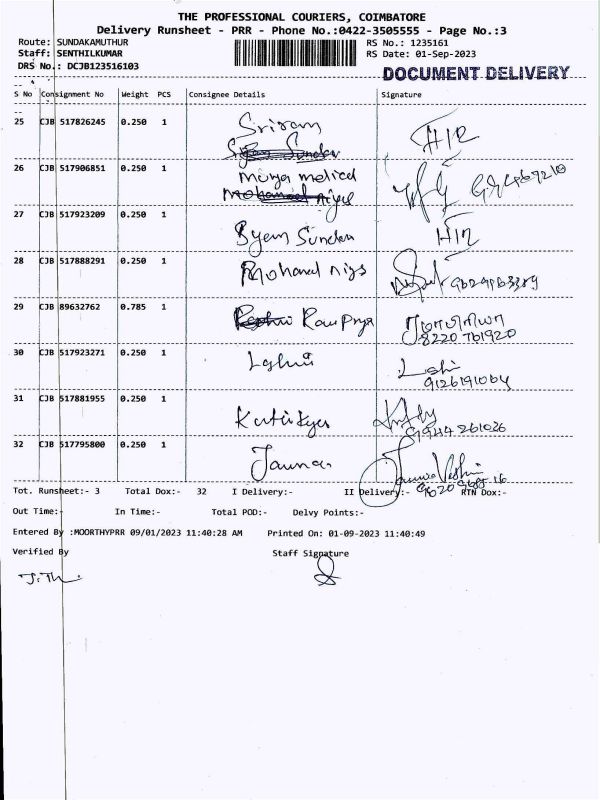 THE PROFESSIONAL COURIERS, COIMBATORE
Delivery Runsheet - PRR - Phone No.:0422-3505555 - Page No.:3
Route: SUNDAKAMUTHUR RS No.: 1235161
Staff: SENTHILKUMAR RS Date: 01-Sep-2023
DRS No.: DCJB123516103
DOCUMENT DELIVERY
S No Consignment No Weight PCS Consignee Details Signature
25 CJB 517826245 0.250 1 Sriram
26 CJB 517906851 0.250 1 Murga medical
27 CJB 517923209 0.250 1 Syam Sundar
28 CJB 517888291 0.250 1 Mohamed niyas
29 CJB 89632762 0.785 1 Ram Prya
8220 761920
30 CJB 517923271 0.250 1
9126191064
31 CJB 517881955 0.250 1
9944 261026
32 CJB 517795800 0.250 1
Tot. Runsheet:- 3 Total Dox:- 32 I Delivery:- II Delivery:- RTN Dox:-
Out Time:- In Time:- Total POD:- Delvy Points:-
Entered By :MOORTHYPRR 09/01/2023 11:40:28 AM Printed On: 01-09-2023 11:40:49
Verified By Staff Signature